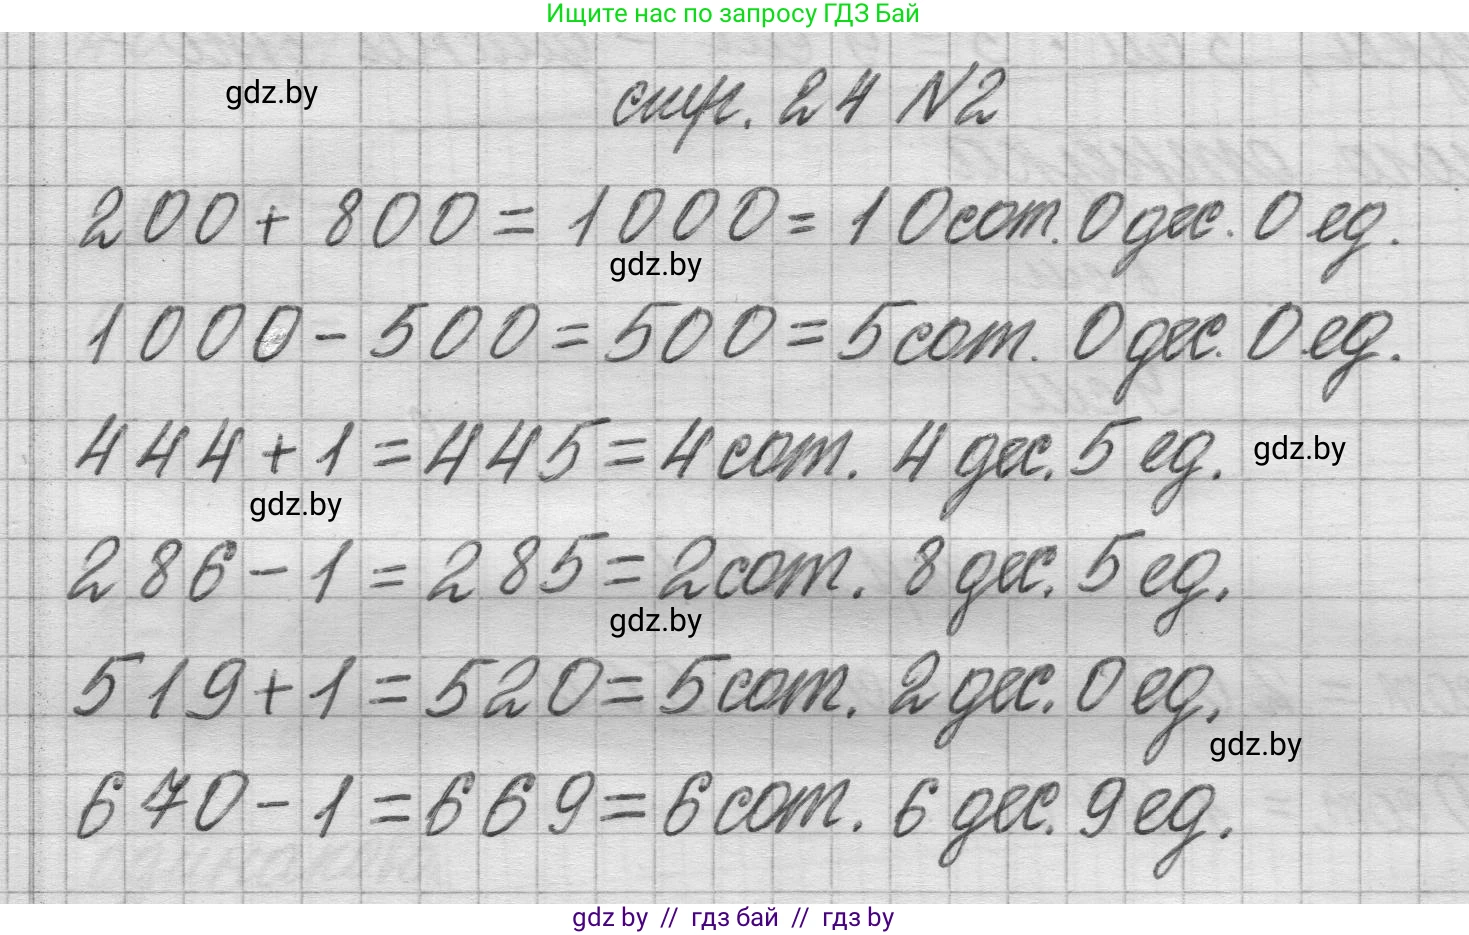 Ищите нас по запросу ГДЗ Бай
gdz.by
стр. 24 №2
200 + 800 = 1000 = 10 сот. 0 дес. 0 ед.
gdz.by
1000 - 500 = 500 = 5 сот. 0 дес. 0 ед.
444 + 1 = 445 = 4 сот. 4 дес. 5 ед.
gdz.by
gdz.by
286 - 1 = 285 = 2 сот. 8 дес. 5 ед.
gdz.by
519 + 1 = 520 = 5 сот. 2 дес. 0 ед.
gdz.by
670 - 1 = 669 = 6 сот. 6 дес. 9 ед.
gdz by // гдз бай // гдз by